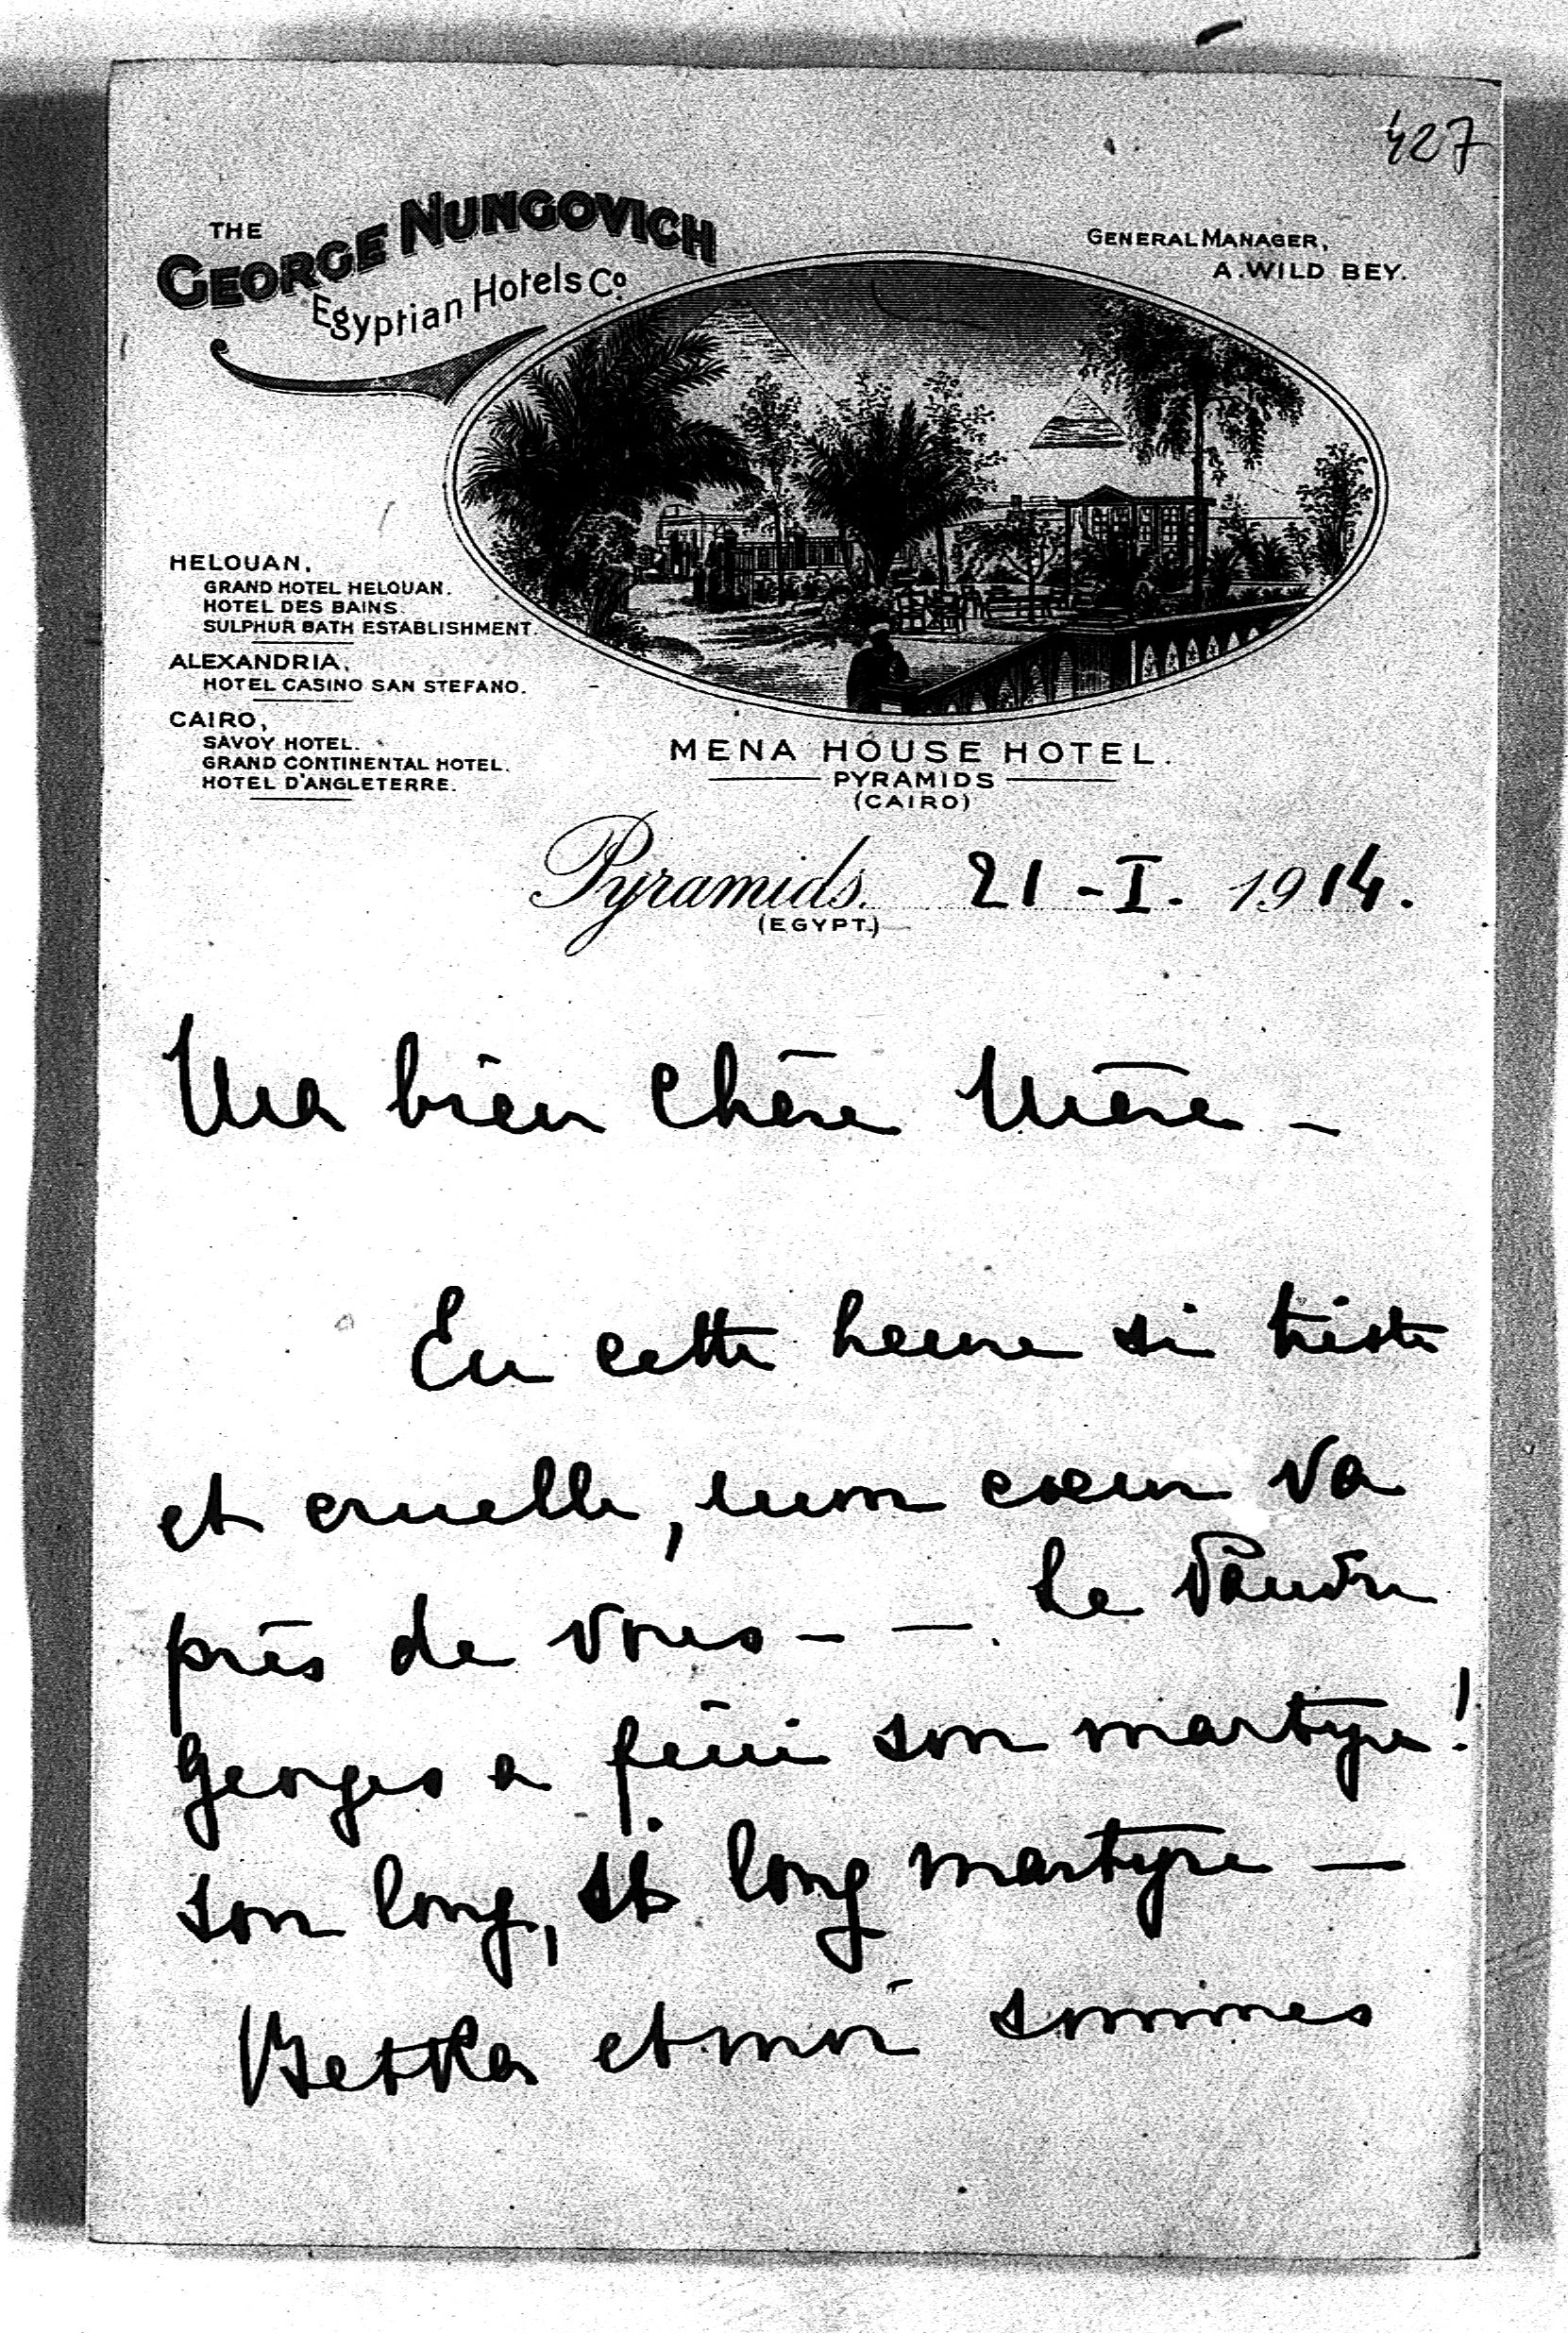 427
THE
GEORGE NUNGOVICH
Egyptian Hotels Co.
GENERAL MANAGER,
A. WILD BEY.
HELOUAN,
GRAND HOTEL HELOUAN.
HOTEL DES BAINS.
SULPHUR BATH ESTABLISHMENT.
ALEXANDRIA,
HOTEL CASINO SAN STEFANO.
CAIRO,
SAVOY HOTEL.
GRAND CONTINENTAL HOTEL.
HOTEL D'ANGLETERRE.
MENA HOUSE HOTEL.
PYRAMIDS
(CAIRO)
Pyramids. 21 - I. 1914.
(EGYPT.)
Ma bien chère Mère -
En cette heure si triste
et cruelle, mon cœur va
près de vous - - . Le Pauvre
Georges a fini son martyre!
son long, si long martyre -
et moi sommes